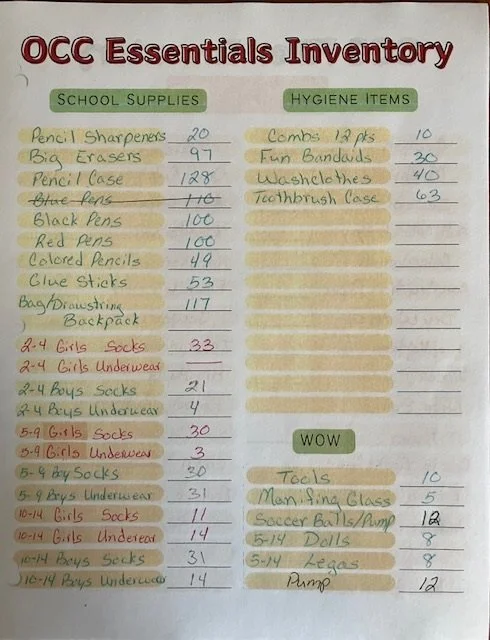 OCC Essentials Inventory
SCHOOL SUPPLIES
Pencil Sharpeners 20
Big Erasers 97
Pencil Case 128
Blue Pens 110
Black Pens 100
Red Pens 100
Colored Pencils 49
Glue Sticks 53
Bag/Drawstring 117
Backpack
2-4 Girls Socks 33
2-4 Girls Underwear —
2-4 Boys Socks 21
2-4 Boys Underwear 4
5-9 Girls Socks 30
5-9 Girls Underwear 3
5-9 Boy Socks 30
5-9 Boys Underwear 31
10-14 Girls Socks 11
10-14 Girls Underear 14
10-14 Boys Socks 31
10-14 Boys Underwear 14
HYGIENE ITEMS
Combs 12 pks 10
Fun Bandaids 30
Washclothes 40
Toothbrush Case 63
WOW
Tools 10
Manifing Glass 5
Soccer Balls/Pump 12
5-14 Dolls 8
5-14 Legos 8
Pump 12